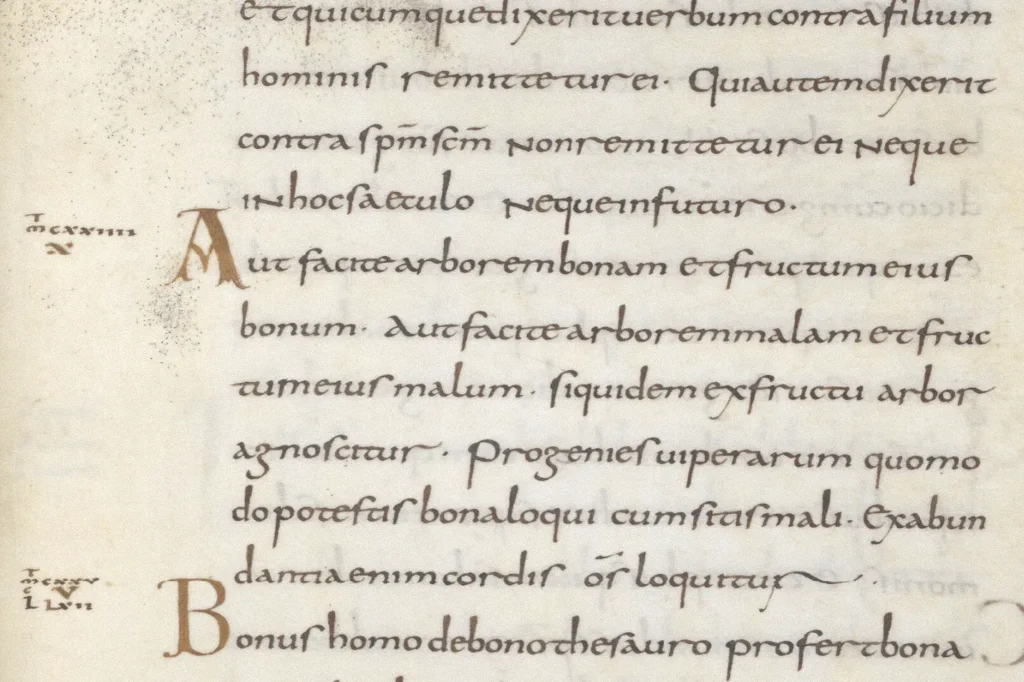 et quicumque dixerit uerbum contra filium
hominis remittetur ei· Qui autem dixerit
contra sp̄m sc̄m Non remittetur ei Neque
iN hoc saeculo Neque in futuro·
mt cxxiiii
x
Aut facite arborem bonam et fructum eius
bonum· Aut facite arborem malam et fruc
tum eius malum· siquidem ex fructu arbor
agnoscitur· Progenies uiperarum quomo
do potestis bona loqui cum sitis mali· Exabun
dantia enim cordis os̄ loquitur·
mt cxxv
v
L Lxii
Bonus homo de bono thesauro profert bona